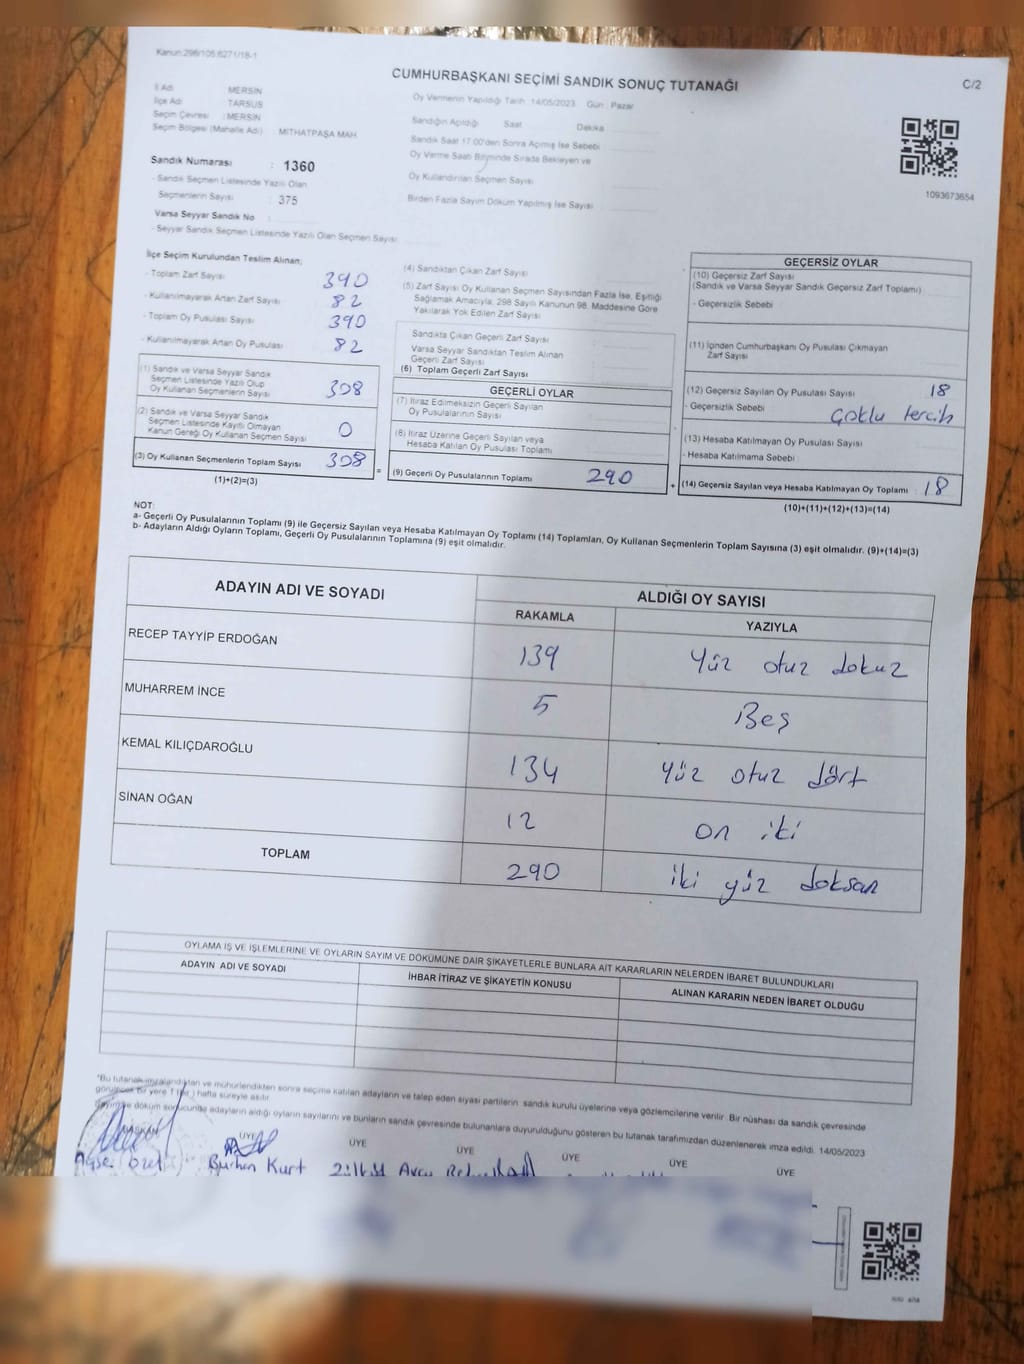 Kanun:298/105.6271/18-1
CUMHURBAŞKANI SEÇİMİ SANDIK SONUÇ TUTANAĞI
C/2
İl Adı : MERSİN
İlçe Adı : TARSUS
Seçim Çevresi : MERSİN
Seçim Bölgesi (Mahalle Adı) : MİTHATPAŞA MAH.
Oy Vermenin Yapıldığı Tarih: 14/05/2023 Gün : Pazar
Sandığın Açıldığı Saat Dakika
Sandık Saat 17:00'den Sonra Açımış İse Sebebi
Oy Verme Saati Bitiminde Sırada Bekleyen ve
Oy Kullandırılan Seçmen Sayısı
Birden Fazla Sayım Döküm Yapılmış İse Sayısı
1093673654
Sandık Numarası : 1360
- Sandık Seçmen Listesinde Yazılı Olan
Seçmenlerin Sayısı : 375
Varsa Seyyar Sandık No :
- Seyyar Sandık Seçmen Listesinde Yazılı Olan Seçmen Sayısı
İlçe Seçim Kurulundan Teslim Alınan;
- Toplam Zarf Sayısı 390
- Kullanılmayarak Artan Zarf Sayısı 82
- Toplam Oy Pusulası Sayısı 390
- Kullanılmayarak Artan Oy Pusulası 82
(1) Sandık ve Varsa Seyyar Sandık
Seçmen Listesinde Yazılı Olup
Oy Kullanan Seçmenlerin Sayısı 308
(2) Sandık ve Varsa Seyyar Sandık
Seçmen Listesinde Kayıtlı Olmayan
Kanun Gereği Oy Kullanan Seçmen Sayısı 0
(3) Oy Kullanan Seçmenlerin Toplam Sayısı 308
(1)+(2)=(3)
(4) Sandıktan Çıkan Zarf Sayısı
(5) Zarf Sayısı Oy Kullanan Seçmen Sayısından Fazla İse, Eşitliği
Sağlamak Amacıyla, 298 Sayılı Kanunun 98. Maddesine Göre
Yakılarak Yok Edilen Zarf Sayısı
Sandıkta Çıkan Geçerli Zarf Sayısı
Varsa Seyyar Sandıktan Teslim Alınan
Geçerli Zarf Sayısı
(6) Toplam Geçerli Zarf Sayısı
GEÇERLİ OYLAR
(7) İtiraz Edilmeksizin Geçerli Sayılan
Oy Pusulalarının Sayısı
(8) İtiraz Üzerine Geçerli Sayılan veya
Hesaba Katılan Oy Pusulası Toplamı
= (9) Geçerli Oy Pusulalarının Toplamı 290 +
GEÇERSİZ OYLAR
(10) Geçersiz Zarf Sayısı
(Sandık ve Varsa Seyyar Sandık Geçersiz Zarf Toplamı)
- Geçersizlik Sebebi
(11) İçinden Cumhurbaşkanı Oy Pusulası Çıkmayan
Zarf Sayısı
(12) Geçersiz Sayılan Oy Pusulası Sayısı 18
- Geçersizlik Sebebi Çoklu tercih
(13) Hesaba Katılmayan Oy Pusulası Sayısı
- Hesaba Katılmama Sebebi
(14) Geçersiz Sayılan veya Hesaba Katılmayan Oy Toplamı : 18
(10)+(11)+(12)+(13)=(14)
NOT:
a- Geçerli Oy Pusulalarının Toplamı (9) ile Geçersiz Sayılan veya Hesaba Katılmayan Oy Toplamı (14) Toplamları, Oy Kullanan Seçmenlerin Toplam Sayısına (3) eşit olmalıdır. (9)+(14)=(3)
b- Adayların Aldığı Oyların Toplamı, Geçerli Oy Pusulalarının Toplamına (9) eşit olmalıdır.
ADAYIN ADI VE SOYADI ALDIĞI OY SAYISI
RAKAMLA YAZIYLA
RECEP TAYYİP ERDOĞAN 139 Yüz otuz dokuz
MUHARREM İNCE 5 Beş
KEMAL KILIÇDAROĞLU 134 Yüz otuz dört
SİNAN OĞAN 12 on iki
TOPLAM 290 iki yüz doksan
OYLAMA İŞ VE İŞLEMLERİNE VE OYLARIN SAYIM VE DÖKÜMÜNE DAİR ŞİKAYETLERLE BUNLARA AİT KARARLARIN NELERDEN İBARET BULUNDUKLARI
ADAYIN ADI VE SOYADI İHBAR İTİRAZ VE ŞİKAYETİN KONUSU ALINAN KARARIN NEDEN İBARET OLDUĞU
*Bu tutanak imzalandıktan ve mühürlendikten sonra seçime katılan adayların ve talep eden siyasi partilerin sandık kurulu üyelerine veya gözlemcilerine verilir. Bir nüshası da sandık çevresinde
görülecek bir yere 1 (bir) hafta süreyle asılır.
Sayım ve döküm sonucunda adayların aldığı oyların sayılarını ve bunların sandık çevresinde bulunanlara duyurulduğunu gösteren bu tutanak tarafımızdan düzenlenerek imza edildi. 14/05/2023
BAŞKAN ÜYE ÜYE ÜYE ÜYE ÜYE ÜYE
Ayşe Özel Burhan Kurt